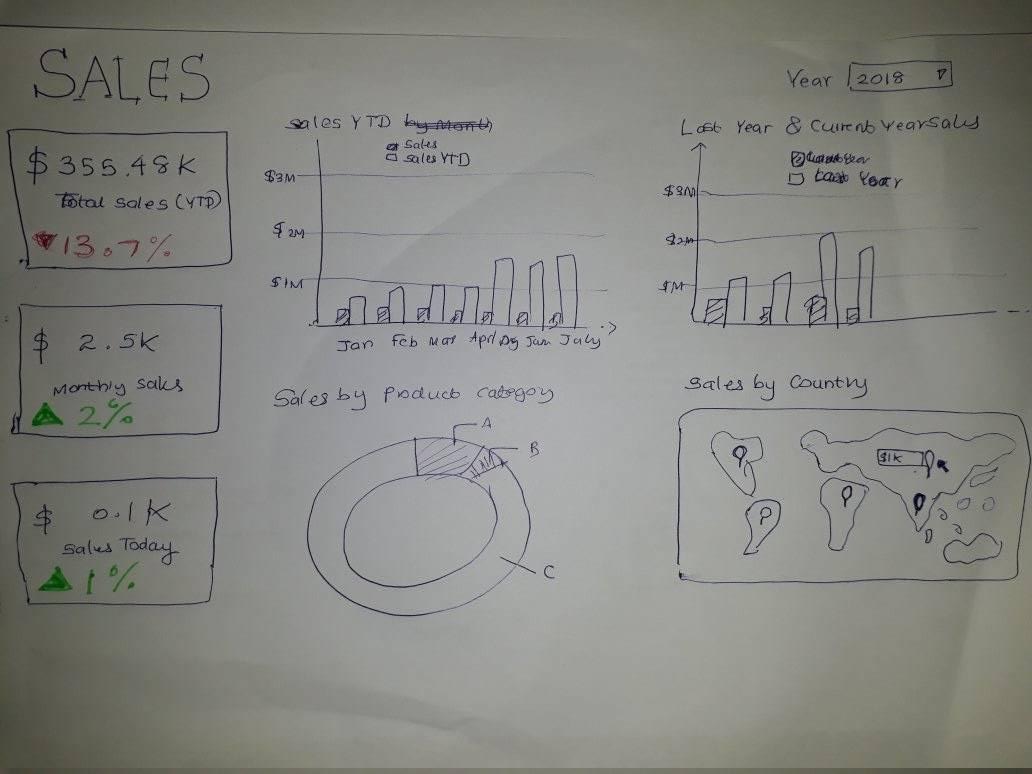 SALES
Year 2018
$ 355.48K
Total Sales (YTD)
13.7%
$ 2.5K
Monthly Sales
2%
$ 0.1K
Sales Today
1%
Sales YTD by Month
Sales
Sales YTD
$3M
$2M
$1M
Jan Feb Mar April Jun July
Last Year & Current Year Sales
Last Year
$3M
$2M
$1M
Sales by Product Category
A
B
C
Sales by Country
$1K